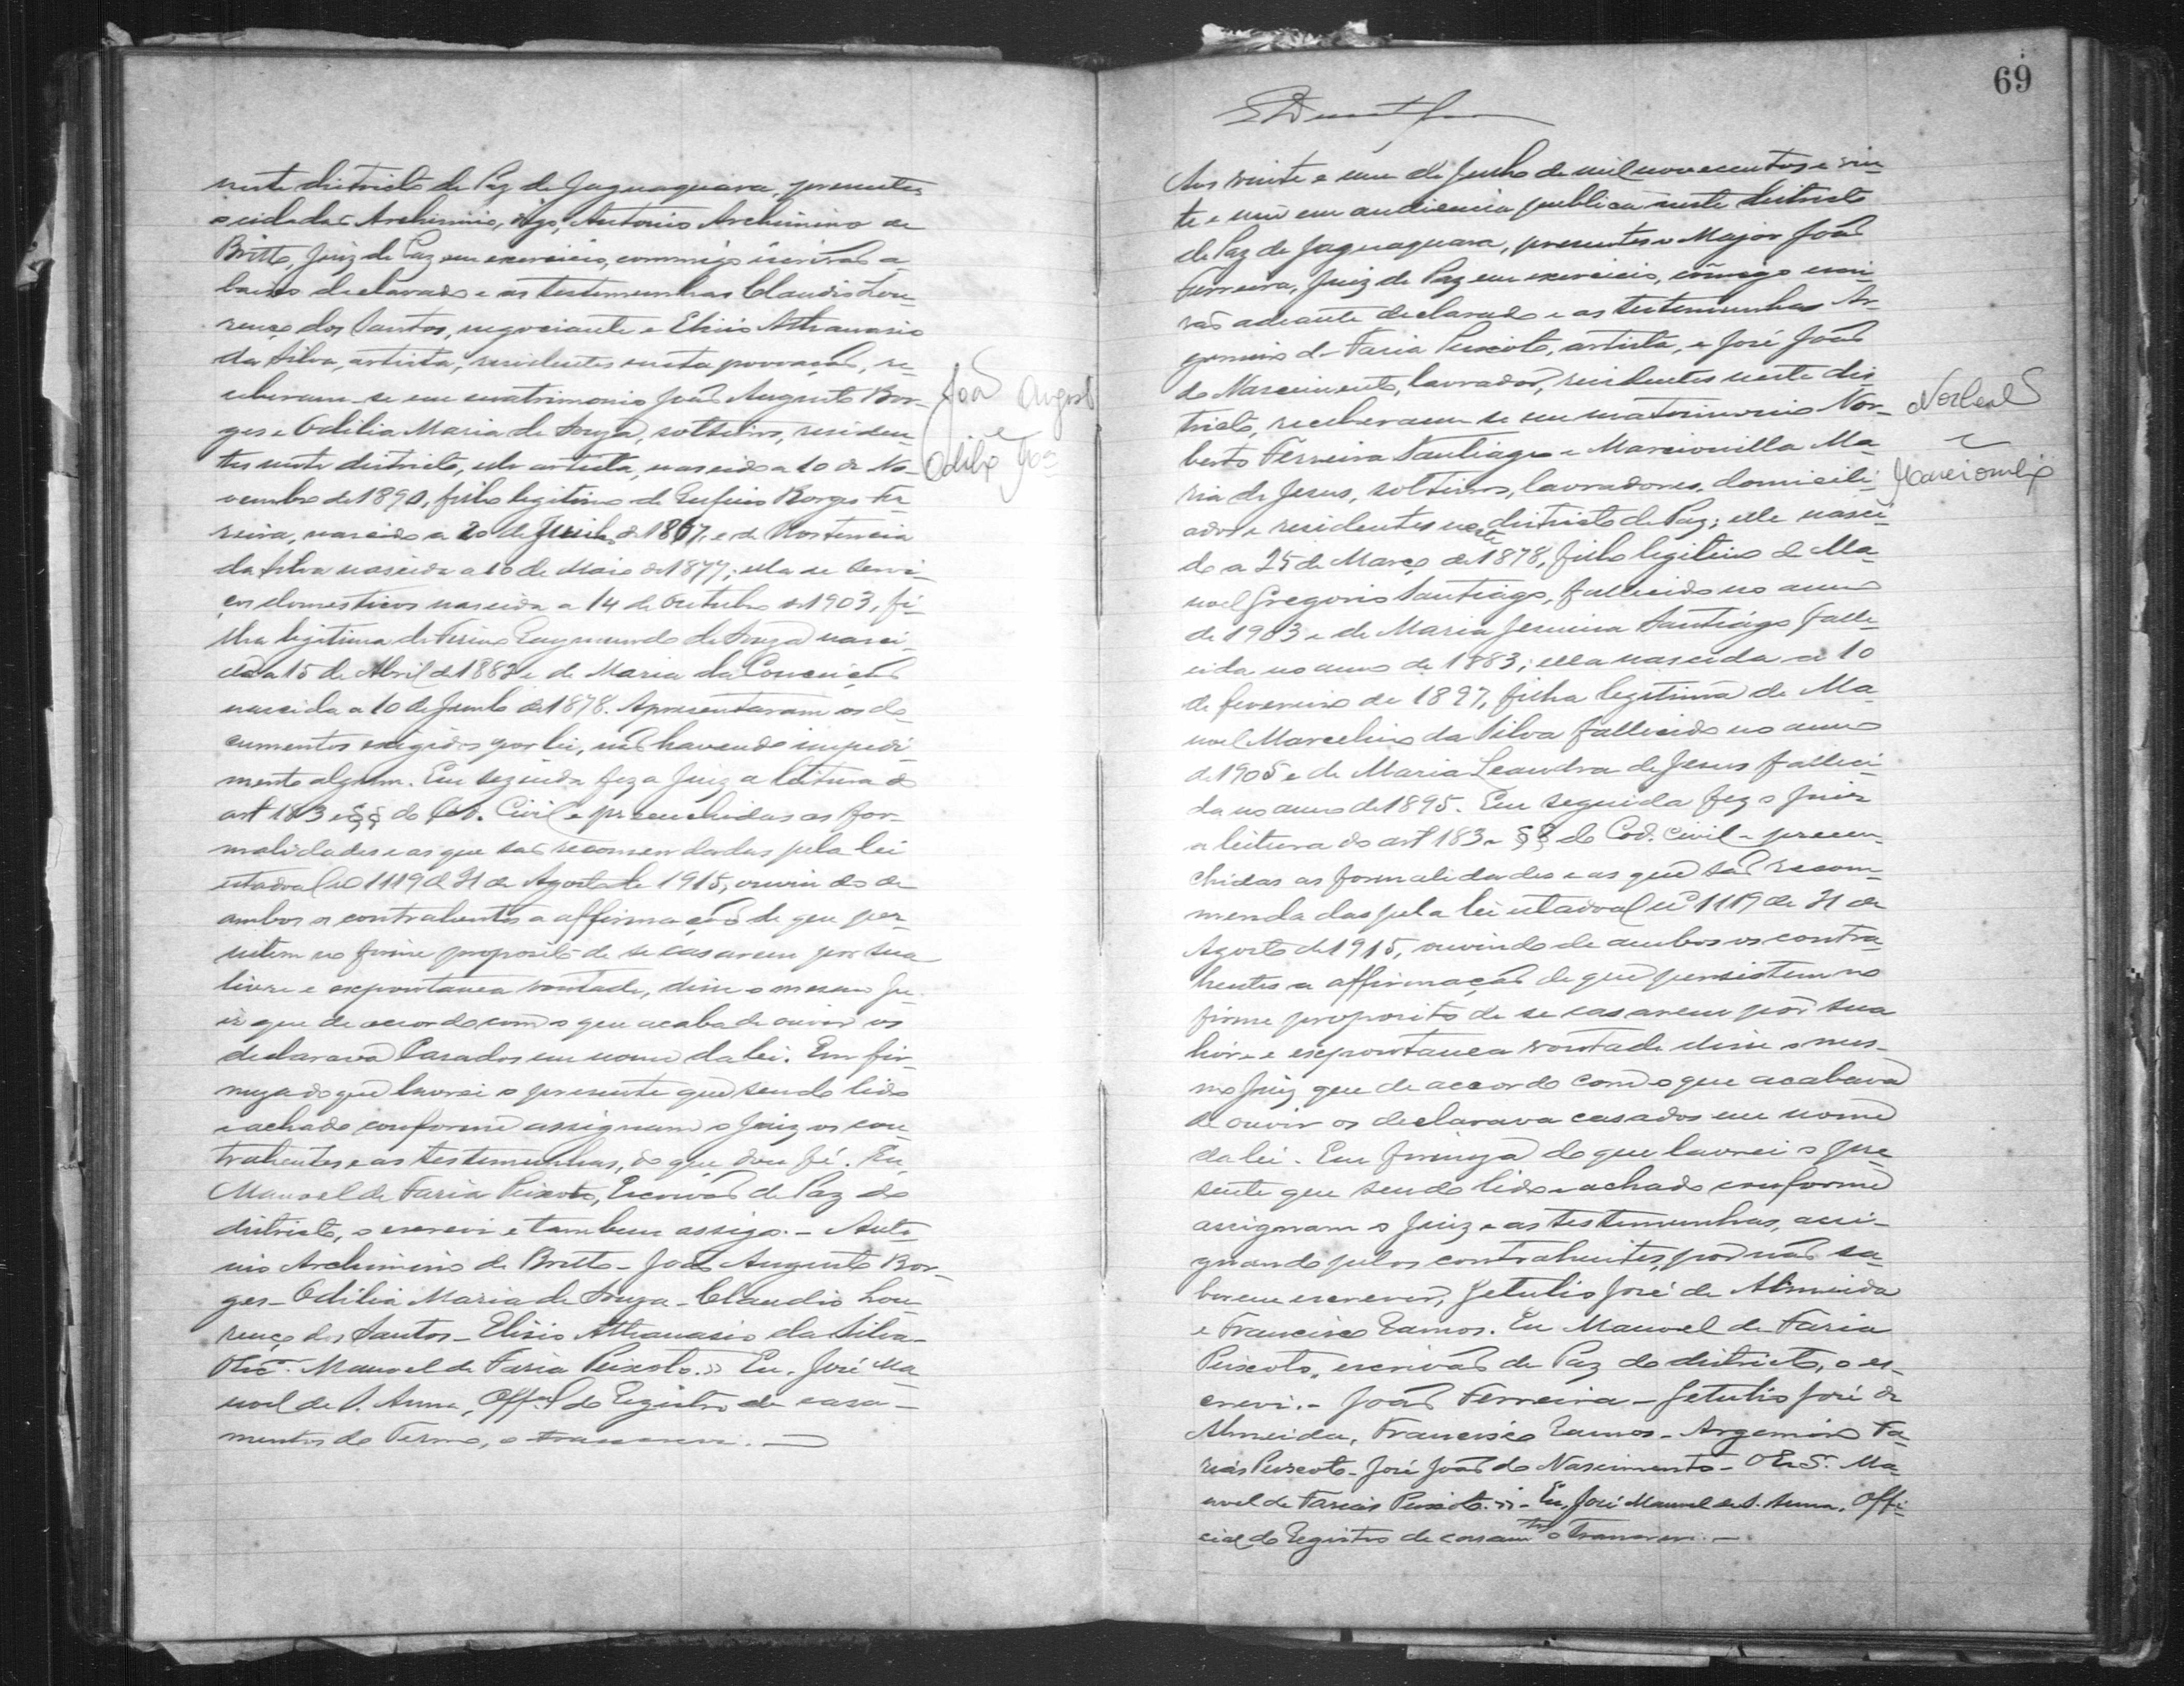 neste districto de Paz de Jaguaquara, presentes
o cidadão Archimino, digo, Antonio Archimino de
Britto, Juiz de Paz em exercicio, commigo escrivão a-
baixo declarado e as testemunhas Claudio Lou-
renço dos Santos, negociante e Elisio Athanasio
da Silva, artista, residentes nesta povoação, re-
ceberam-se em matrimonio João Augusto Bor-
ges e Odilia Maria de Souza, solteiros, residen-
tes neste districto, elle artista, nascido a 10 de No-
vembro de 1890, filho legitimo de Borges Fer-
reira, nascido a 20 de de 1867, e de Hortencia
da Silva nascida a 10 de Maio de 1877; ella de servi-
ços domesticos nascida a 14 de Outubro de 1903, fi-
lha legitima de Raymundo de Souza nasci-
do a 15 de Abril de 1883 e de Maria da Conceição
nascida a 10 de Junho de 1878. Apresentaram os do-
cumentos exigidos por lei, não havendo impedi-
mento algum. Em seguida fez a Juiz a leitura do
art 183 e §§ do Cod. Civil e preenchidas as for-
malidades e as que são recommendadas pela lei
estadoal nº 1119 de 21 de Agosto de 1915, ouvindo de
ambos os contrahentes a affirmação de que per-
sistem no firme proposito de se casarem por sua
livre e expontanea vontade, disse o mesmo Ju-
iz que de accordo com o que acaba de ouvir os
declarava Casados em nome da lei. Em fir-
meza do que lavrei o presente que sendo lido
e achado conforme assignam o Juiz, os con-
trahentes e as testemunhas, do que dou fé. Eu,
Manoel de Faria Peixoto, Escrivão de Paz do
districto, o escrevi e tambem assigo. - Anto-
nio Archimino de Britto - João Augusto Bor-
ges - Odilia Maria de Souza - Claudio Lou-
renço dos Santos - Elisio Athanasio da Silva -
O Esc. Manoel de Faria Peixoto. » Eu, José Ma-
noel de S. Anna, Offal do Registro de casa-
mentos do Termo, o transcrevi. -
João August
e
Odilia
69
Aos vinte e um de Junho de mil novecentos e vin-
te e um em audiencia publica neste districto
de Paz de Jaguaquara, presentes o Major João
Ferreira, Juiz de Paz em exercicio, cômigo escri-
vão adeante declarado e as testemunhas Ar-
gemiro de Faria Peixoto, artista, e José João
do Nascimento, lavrador, residentes neste dis-
tricto, receberam se em matrimonio Nor-
berto Ferreira Santiago e Marcionilla Ma-
ria de Jesus, solteiros, lavradores, domicili-
ados e residentes neste districto de Paz; elle nasci-
do a 25 de Março de 1878, filho legitimo de Ma-
noel Gregorio Santiago, fallecido no anno
de 1903 e de Maria Jesuina Santiago falle-
cida no anno de 1883; ella nascida a 10
de fevereiro de 1897, filha legitima de Ma-
noel Marcelino da Silva fallecido no anno
de 1905 e de Maria Leandra de Jesus falleci-
da no anno de 1895. Em seguida fez o Juiz
a leitura do art 183 e §§ do Cod. Civil e preen-
chidas as formalidades e as que são recom-
mendadas pela lei estadoal nº 1119 de 21 de
Agosto de 1915, ouvindo de ambos os contra-
hentes a affirmação de que persistem no
firme proposito de se casarem por sua
livre e expontanea vontade disse o mes-
mo Juiz que de accordo com o que acabava
de ouvir os declarava casados em nome
da lei. Em firmeza do que lavrei o pre-
sente que sendo lido e achado conforme
assignam o Juiz e as testemunhas, assi-
gnando pelos contrahentes, por não sa-
berem escrever, Getulio José de Almeida
e Francisco Ramos. Eu Manoel de Faria
Peixoto, escrivão de Paz do districto, o es-
crevi. - João Ferreira - Getulio José de
Almeida, Francisco Ramos - Argemiro Fa-
rias Peixoto - José João do Nascimento - O Es. Ma-
noel de Farias Peixoto. » - Eu, José Manoel de S. Anna, Offi-
cial do Registro de casamtos o transcrevi. -
e